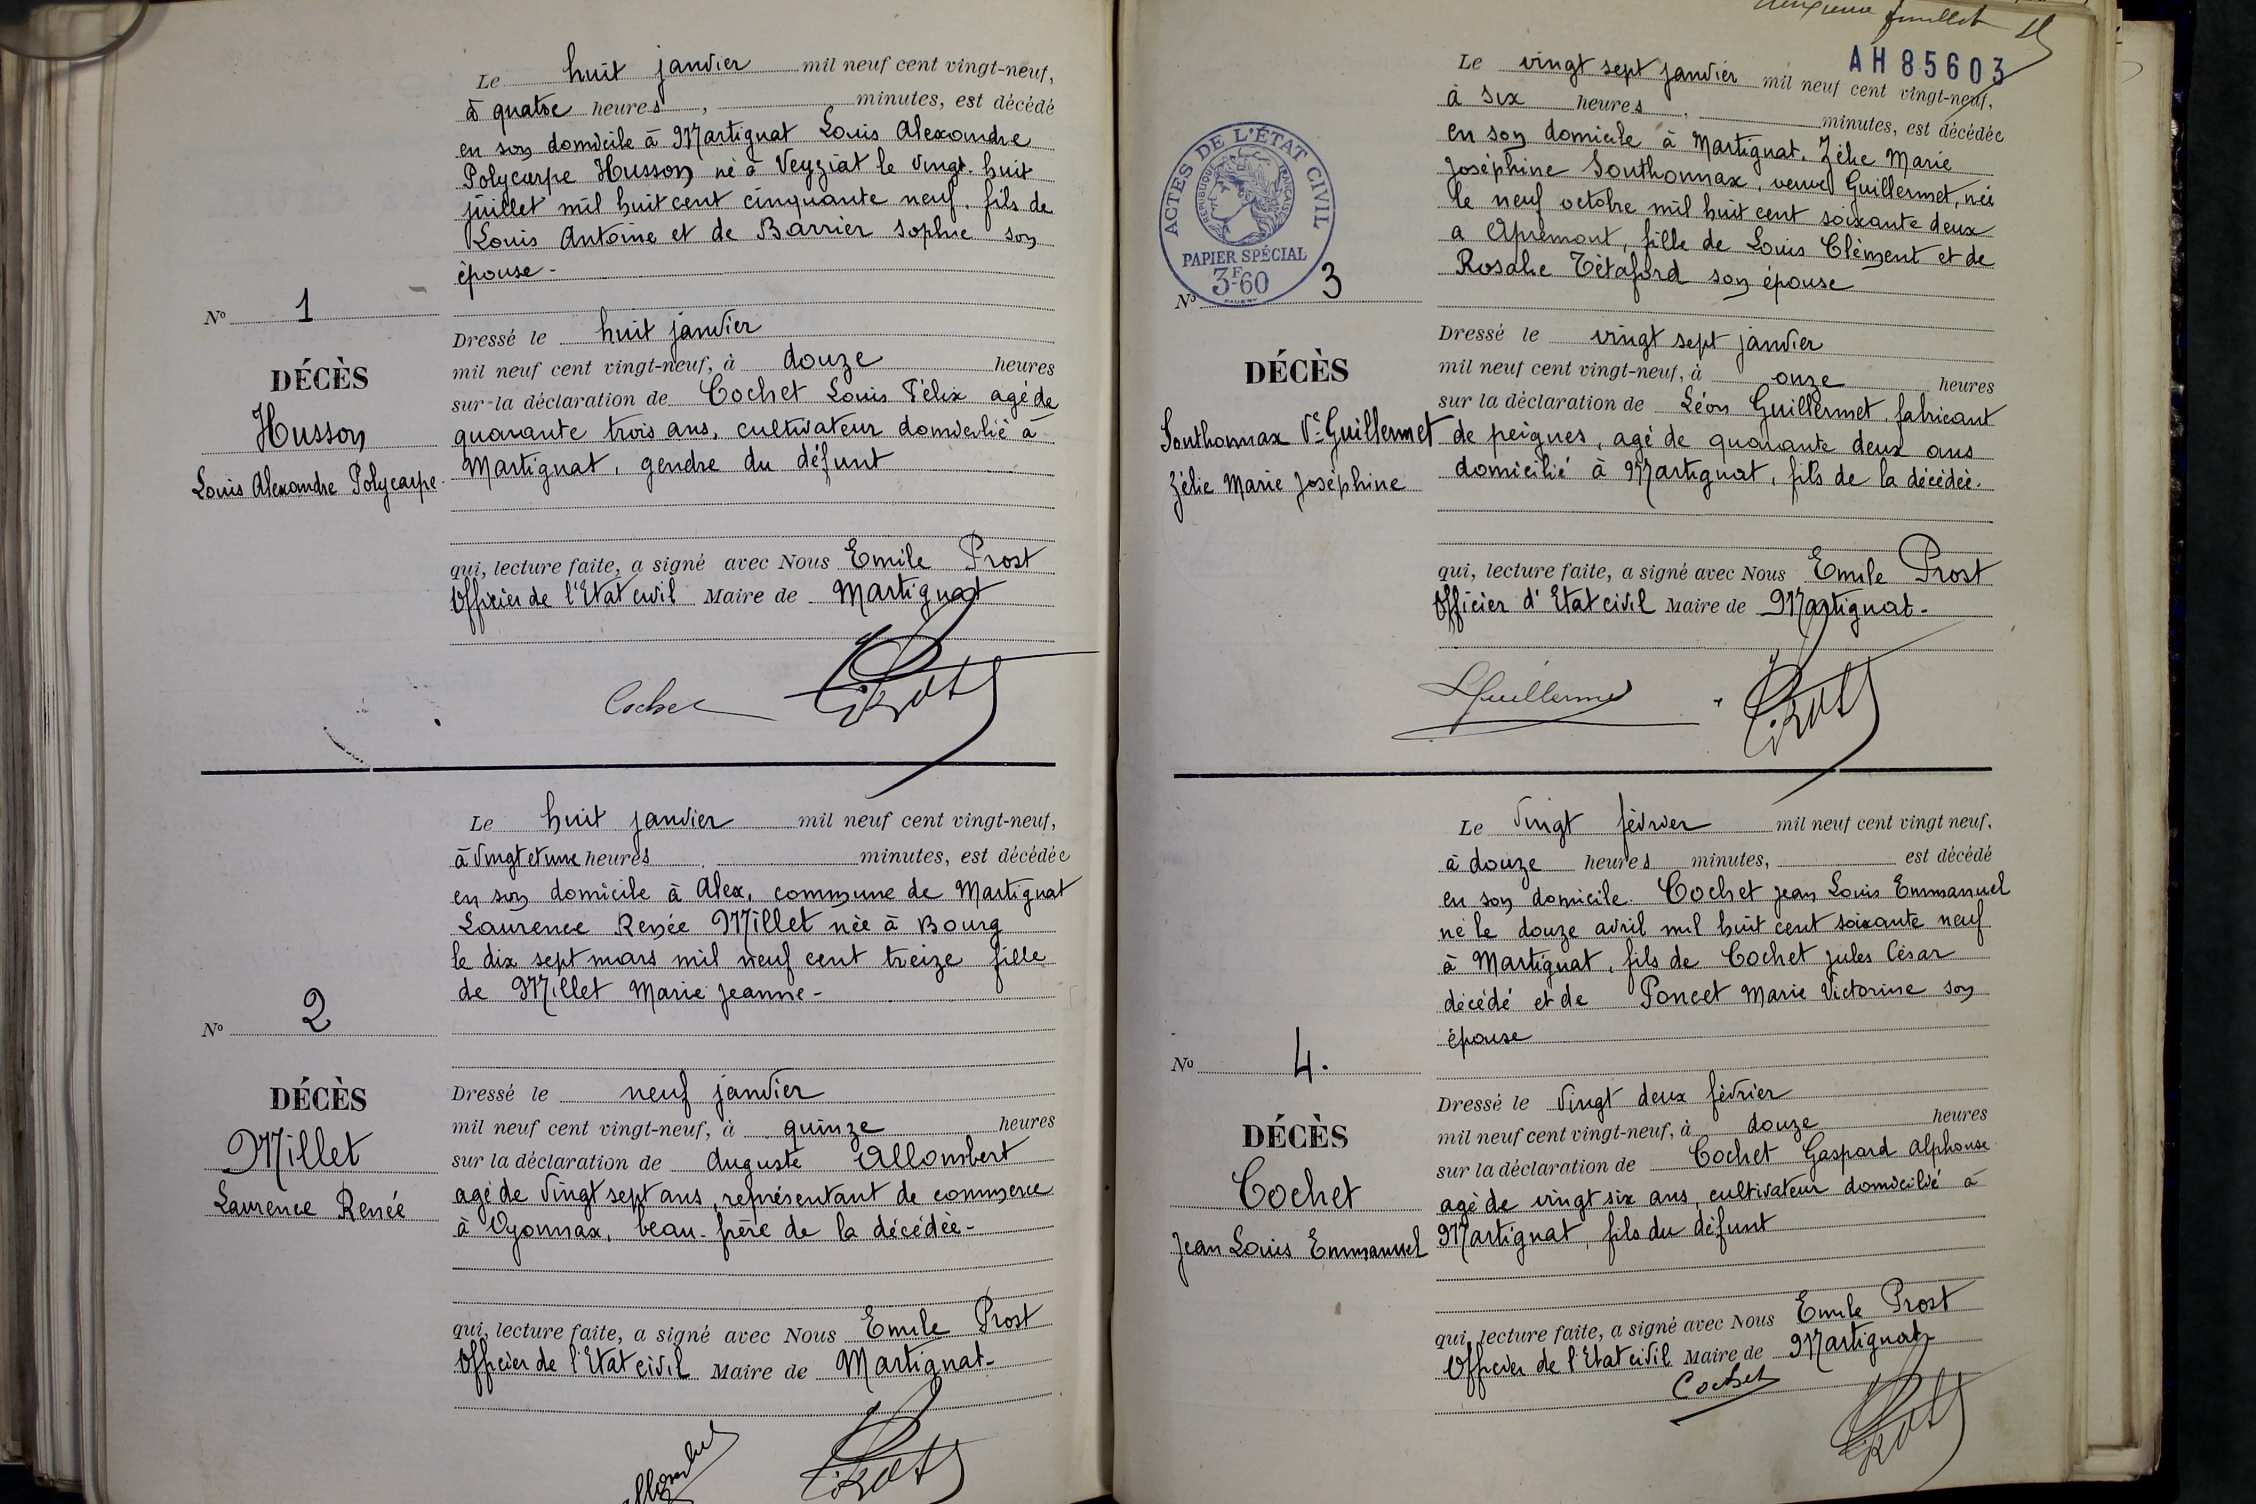 Le huit janvier mil neuf cent vingt-neuf,
à quatre heures, minutes, est décédé
en son domicile à Martignat Louis Alexandre
Polycarpe Husson né à Veyziat le vingt-huit
juillet mil huit cent cinquante neuf. fils de
Louis Antoine et de Barrier Sophie son
épouse-
No 1
Dressé le huit janvier
mil neuf cent vingt-neuf, à douze heures
DÉCÈS
sur la déclaration de Cochet Louis Félix agé de
Husson
quarante trois ans, cultivateur domicilié à
Louis Alexandre Polycarpe.
Martignat, gendre du défunt
qui, lecture faite, a signé avec Nous Emile Prost
Officier de l'Etat civil Maire de Martignat
Cochet Prost
Le huit janvier mil neuf cent vingt-neuf,
à vingt et une heures, minutes, est décédée
en son domicile à Alex, commune de Martignat
Laurence Renée Millet née à Bourg
le dix sept mars mil neuf cent treize fille
de Millet Marie Jeanne-
No 2
Dressé le neuf janvier
DÉCÈS
mil neuf cent vingt-neuf, à quinze heures
Millet
sur la déclaration de Auguste Allombert
Laurence Renée
agé de vingt sept ans, représentant de commerce
à Oyonnax, beau-frère de la décédée-
qui, lecture faite, a signé avec Nous Emile Prost
Officier de l'Etat civil Maire de Martignat-
Allombert Prost
deuxième feuillet
AH85603
Le vingt sept janvier mil neuf cent vingt-neuf,
à six heures, minutes, est décédée
en son domicile à Martignat. Zélie Marie
Joséphine Southonnax, veuve Guillermet, née
le neuf octobre mil huit cent soixante deux
a Apremont, fille de Louis Clément et de
Rosalie Tétaford son épouse
ACTES DE L'ÉTAT CIVIL
RÉPUBLIQUE FRANÇAISE
PAPIER SPÉCIAL
3F-60
No 3
Dressé le vingt sept janvier
mil neuf cent vingt-neuf, à onze heures
DÉCÈS
sur la déclaration de Léon Guillermet, fabricant
Southonnax Ve Guillermet
de peignes, agé de quarante deux ans
Zélie Marie Joséphine
domicilié à Martignat, fils de la décédée.
qui, lecture faite, a signé avec Nous Emile Prost
Officier d'Etat civil Maire de Martignat-
LGuillermet Prost
Le vingt février mil neuf cent vingt neuf,
à douze heures minutes, est décédé
en son domicile. Cochet Jean Louis Emmanuel
né le douze avril mil huit cent soixante neuf
à Martignat, fils de Cochet Jules César
décédé et de Poncet Marie Victorine son
épouse
No 4.
Dressé le vingt deux février
mil neuf cent vingt-neuf, à douze heures
DÉCÈS
sur la déclaration de Cochet Gaspard Alphonse
Cochet
agé de vingt six ans, cultivateur domicilié à
Jean Louis Emmanuel
Martignat, fils du défunt
qui, lecture faite, a signé avec Nous Emile Prost
Officier de l'Etat civil Maire de Martignat
Cochet Prost